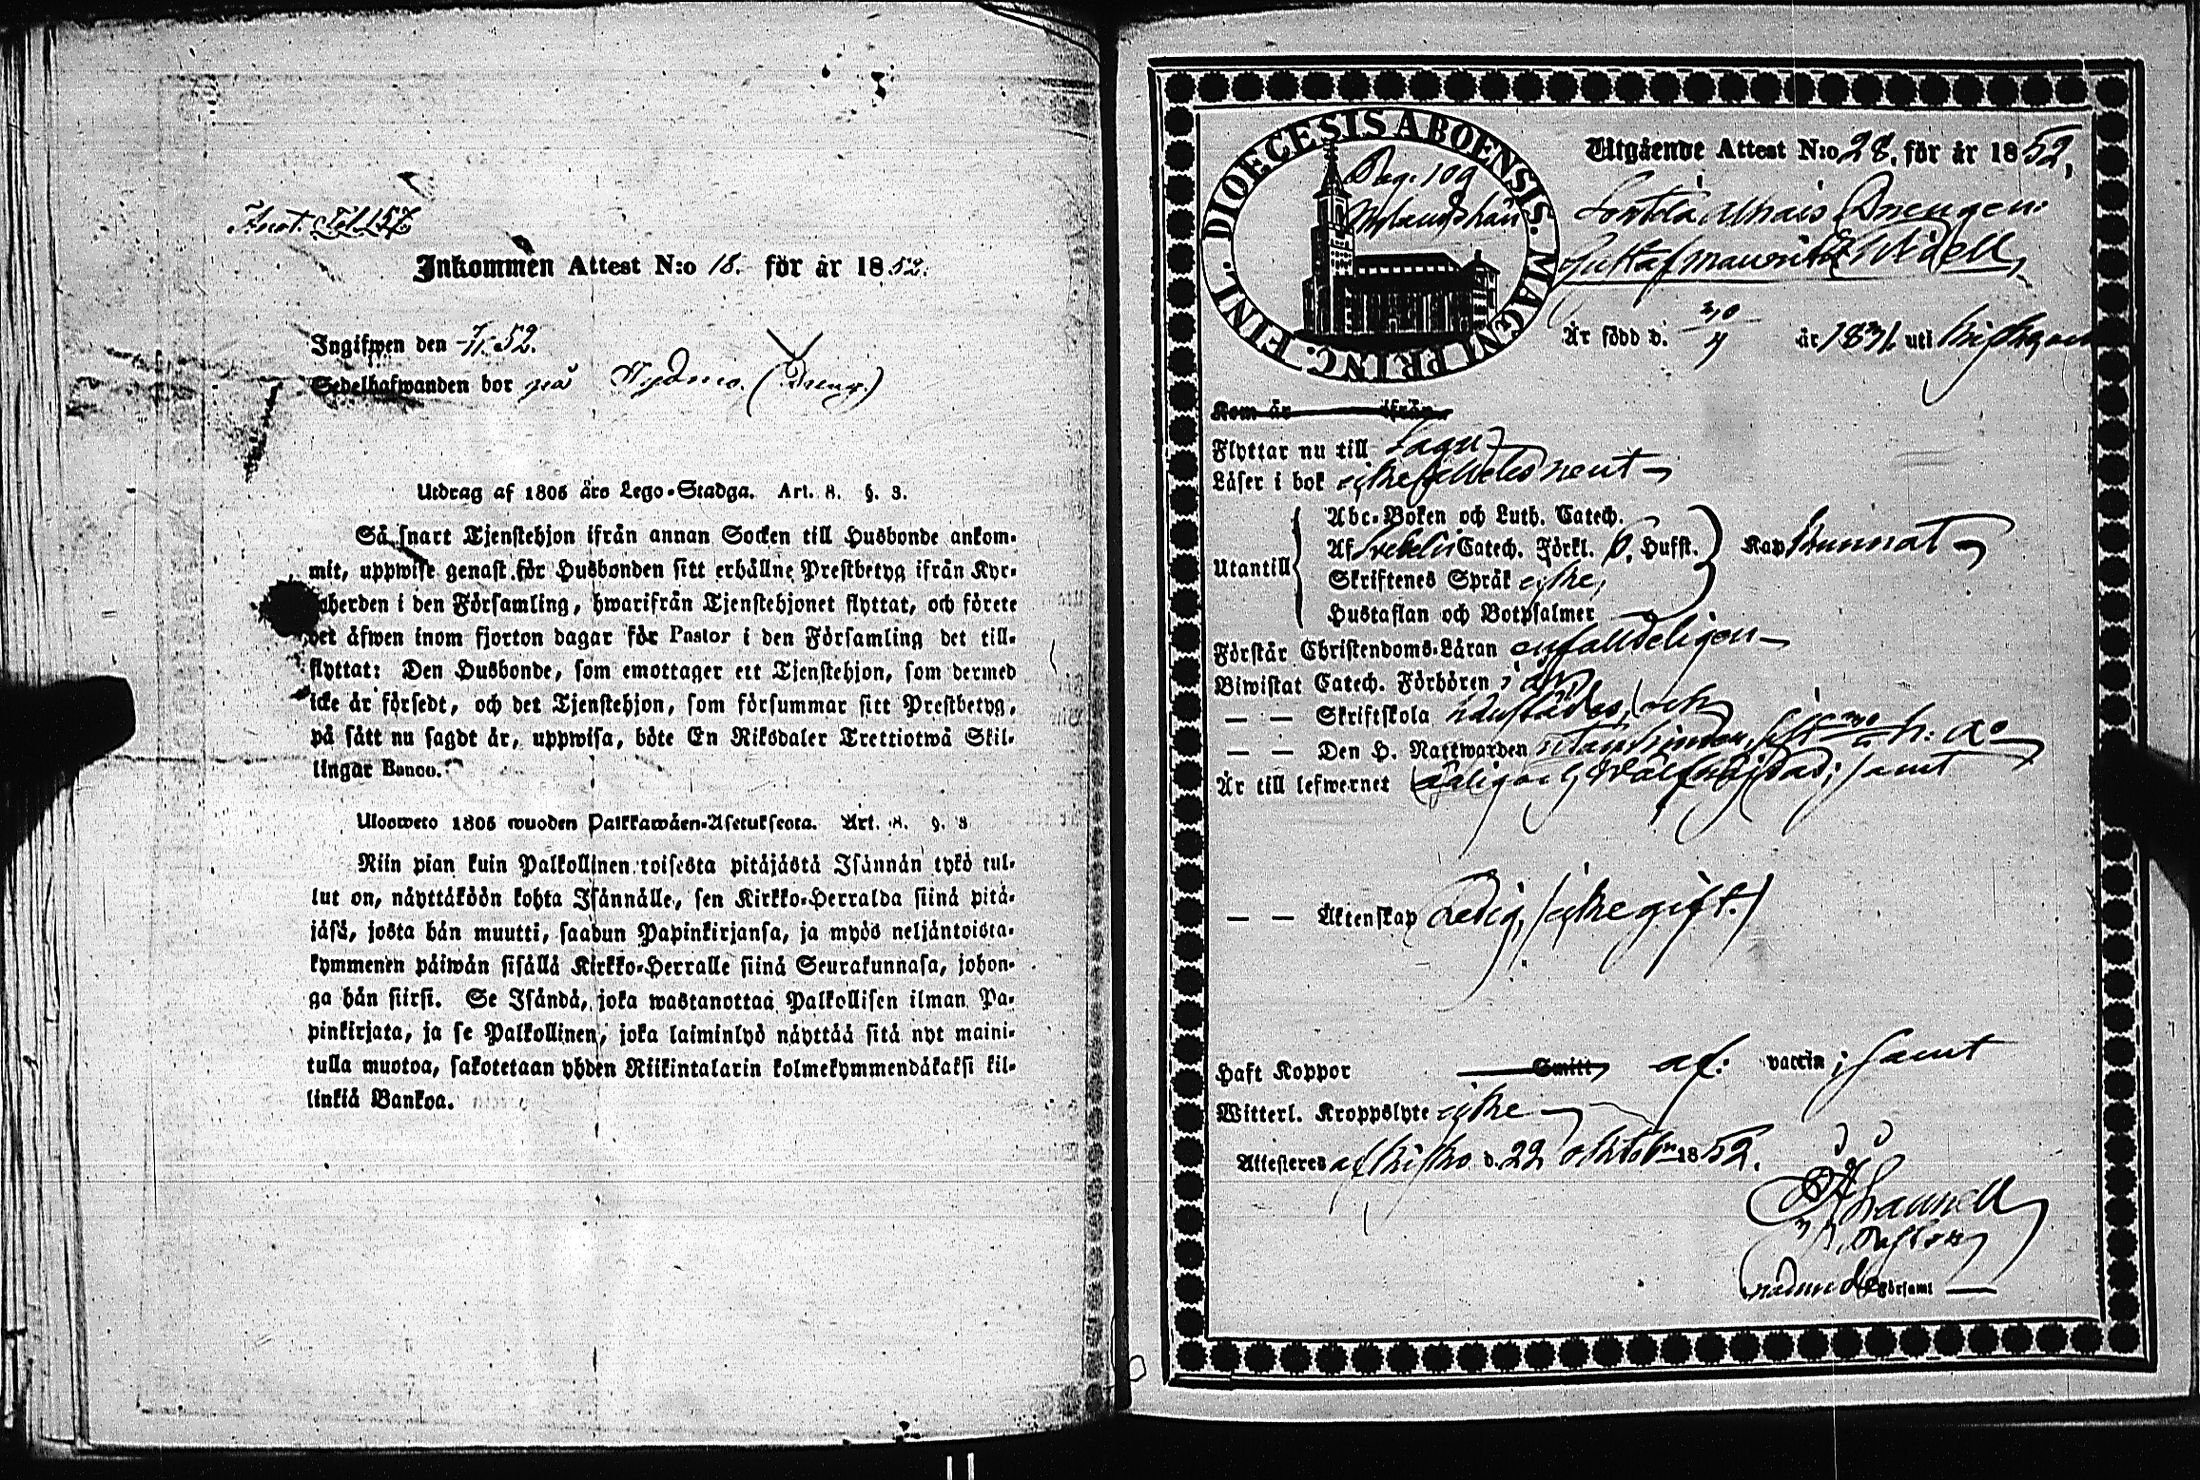 Inkommen Attest N:o 18. för år 1852.
Ingifwen den 7/11 52.
Sedelhafwanden bor på (Dreng.)
Utdrag af 1805 års Lego-Stadga. Art. 8. §. 3.
Så snart Tjenstehjon ifrån annan Socken till Husbonde ankom-
mit, uppwise genast för Husbonden sitt erhållne Prestbetyg ifrån Kyr-
koherden i den Församling, hwarifrån Tjenstehjonet flyttat, och förete
det åfwen inom fjorton dagar för Pastor i den Församling det till-
flyttat: Den Husbonde, som emottager ett Tjenstehjon, som dermed
icke är försedt, och det Tjenstehjon, som försummar sitt Prestbetyg,
på sätt nu sagdt är, uppwisa, böte En Riksdaler Trettiotwå Skil-
lingar Banco.
Uloswето 1805 wuoden Palkkawäen-Asetuksesta. Art. 8. §. 3
Niin pian kuin Palkollinen toisesta pitäjästä Isännän tykö tul-
lut on, näyttäköön kohta Isännälle, sen Kirkko-Herralda siinä pitä-
jäsä, josta hän muutti, saadun Papinkirjansa, ja myös neljäntoista-
kymmenen päiwän sisällä Kirkko-Herralle siinä Seurakunnasa, johon-
ga hän siirsi. Se Isändä, joka wastanottaa Palkollisen ilman Pa-
pinkirjata, ja se Palkollinen, joka laiminlyö näyttää sitä nyt maini-
tulla muotoa, sakotetaan yhden Riikintalarin kolmekymmendäkaksi kil-
linkiä Bankoa.
DIOECESIS ABOENSIS. MAGNI PRINC. FINL.
Pag. 109
Utgående Attest N:o 28. för år 1852.
Drengen
Gustaf Mauritz Widell
Är född d. 30/4 år 1831 uti Kisko
Kom år ifrån
Flyttar nu till Sagu
Läser i bok
Abc-Boken och Luth. Catech.
Utantill Af Svebelii Catech. Förkl. 6. Hufst. Kap
Skriftenes Språk ejke,
Hustaflan och Botpsalmer
Förstår Christendoms-Läran enfaldeligen
Biwistat Catech. Förhören
— — Skriftskola
— — Den H. Nattwarden
Är till lefwernet samt
— — Äktenskap Ledig, (ejke gift.)
Haft Koppor Smitt af: vaccin; samt
Witterl. Kroppslyte ejke
Attesteras af Kisko d. 22 Oktober 1852.
Församl